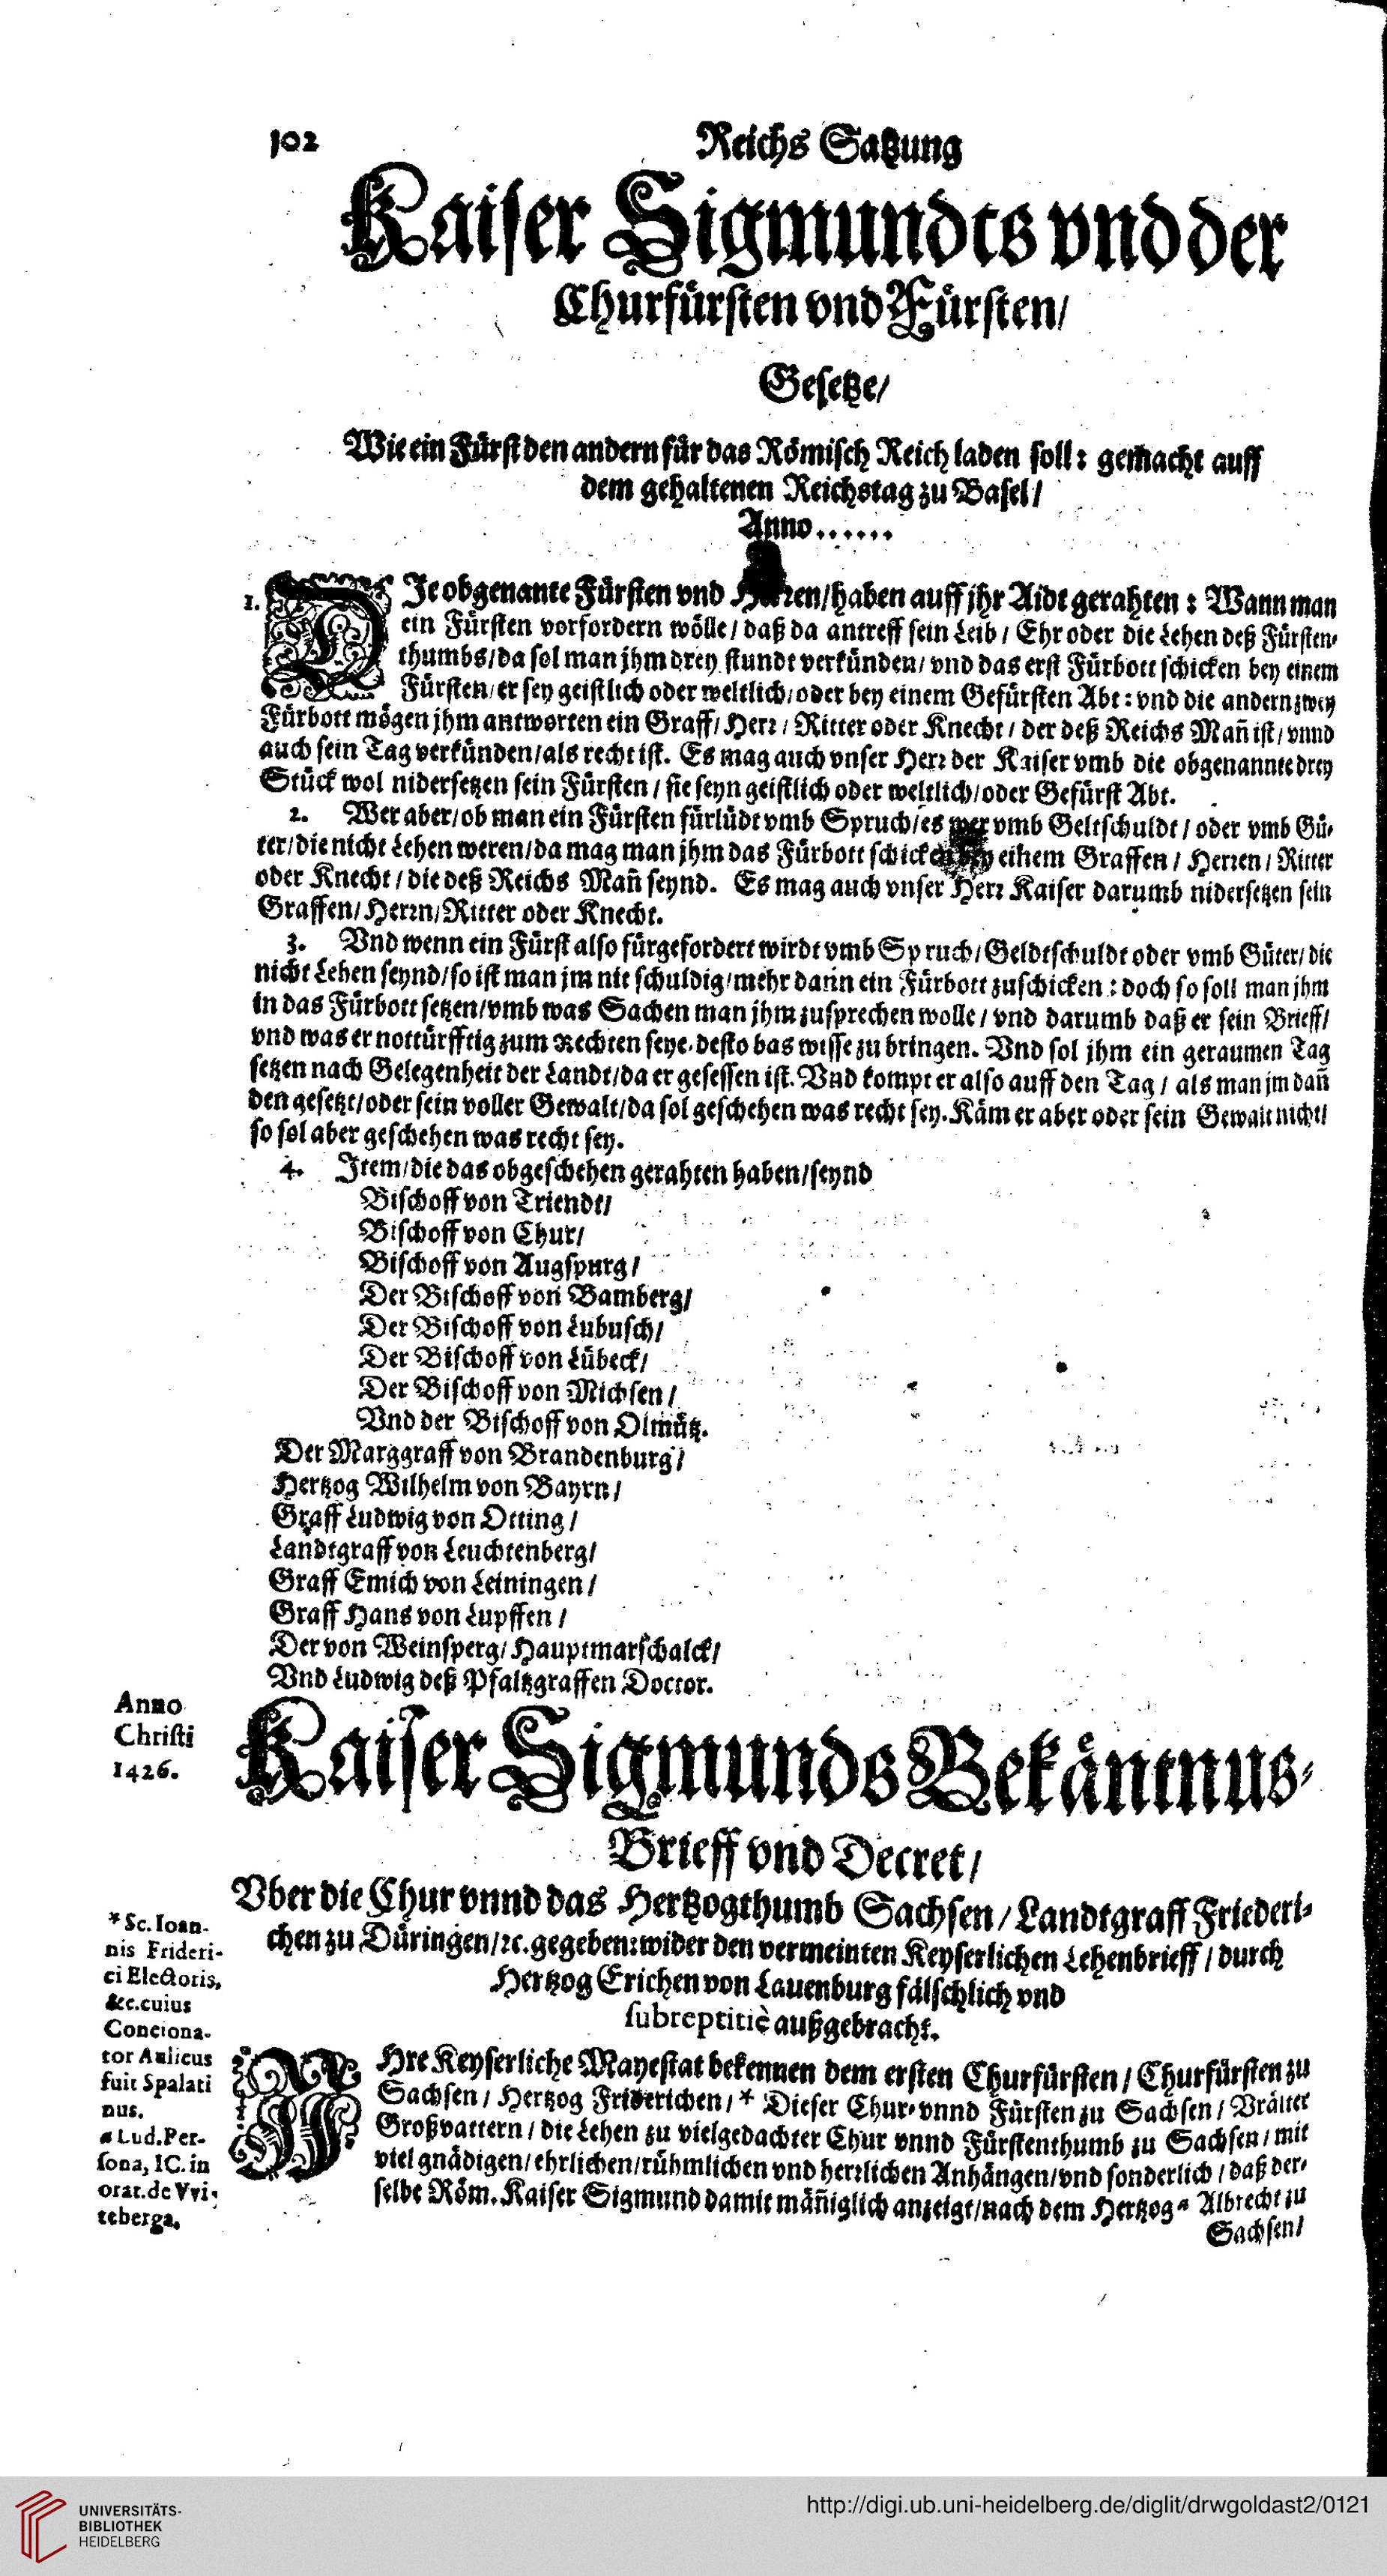 102 Reichs Satzung
Kaiser Sigmundts vnd der
Churfürsten vnd Fürsten/
Gesetze/
Wie ein Fürst den andern für das Römisch Reich laden soll: gemacht auff
dem gehaltenen Reichstag zu Basel/
Anno......
1. DJe obgenante Fürsten vnd Herren/haben auff jhr Aidt gerahten: Wann man
ein Fürsten vorfordern wölle/ daß da antreff sein Leib/ Ehr oder die Lehen deß Fürsten-
thumbs/da sol man jhm drey stundt verkünden/ vnd das erst Fürbott schicken bey einem
Fürsten/er sey geistlich oder weltlich/oder bey einem Gefürsten Abt: vnd die andern zwey
Fürbott mögen jhm antworten ein Graff/Herr/ Ritter oder Knecht/ der deß Reichs Mañ ist/vnnd
auch sein Tag verkünden/als recht ist. Es mag auch vnser Herr der Kaiser vmb die obgenannte drey
Stück wol nidersetzen sein Fürsten/ sie seyn geistlich oder weltlich/oder Gefürst Abt.
2. Wer aber/ob man ein Fürsten fürlüdt vmb Spruch/es wer vmb Geltschuldt/ oder vmb Gü-
ter/die nicht Lehen weren/da mag man jhm das Fürbott schicken bey einem Graffen/ Herren/ Ritter
oder Knecht/die deß Reichs Mañ seynd. Es mag auch vnser Herr Kaiser darumb nidersetzen sein
Graffen/Herrn/Ritter oder Knecht.
3. Vnd wenn ein Fürst also fürgefordert wirdt vmb Spruch/Geldtschuldt oder vmb Güter/die
nicht Lehen seynd/so ist man jm nit schuldig/mehr dann ein Fürbott zuschicken: doch so soll man jhm
in das Fürbott setzen/vmb was Sachen man jhm zusprechen wolle/ vnd darumb daß er sein Brieff/
vnd was er nottürfftig zum Rechten seye, desto bas wisse zu bringen. Vnd sol jhm ein geraumen Tag
setzen nach Gelegenheit der Landt/da er gesessen ist. Vnd kompt er also auff den Tag/ als man jm dañ
den gesetzt/oder sein voller Gewalt/da sol geschehen was recht sey. Käm er aber oder sein Gewalt nicht/
so sol aber geschehen was recht sey.
4. Jtem/die das obgeschehen gerahten haben/seynd
Bischoff von Triendt/
Bischoff von Chur/
Bischoff von Augspurg/
Der Bischoff von Bamberg/
Der Bischoff von Lubusch/
Der Bischoff von Lübeck/
Der Bischoff von Michsen/
Vnd der Bischoff von Olmütz.
Der Marggraff von Brandenburg/
Hertzog Wilhelm von Bayrn/
Graff Ludwig von Otting/
Landtgraff von Leuchtenberg/
Graff Emich von Leiningen/
Graff Hans von Lupffen/
Der von Weinsperg/Hauptmarschalck/
Vnd Ludwig deß Pfaltzgraffen Doctor.
Anno
Christi
1426.
Kaiser Sigmunds Bekäntnus-
Brieff vnd Decret/
Vber die Chur vnnd das Hertzogthumb Sachsen/Landtgraff Friederi-
chen zu Düringen/ꝛc. gegeben: wider den vermeinten Keyserlichen Lehenbrieff/durch
Hertzog Erichen von Lauenburg fälschlich vnd
subreptitiè außgebracht.
* Sc. Ioan-
nis Frideri-
ci Electoris,
&c. cuius
Conciona-
tor Aulicus
fuit Spalati
nus.
a Lud. Per-
sona, IC. in
orat. de Vvi-
teberga.
JHre Keyserliche Mayestat bekennen dem ersten Churfürsten/ Churfürsten zu
Sachsen/ Hertzog Friderichen/* Dieser Chur- vnnd Fürsten zu Sachsen/ Vrälter
Großvattern/ die Lehen zu vielgedachter Chur vnnd Fürstenthumb zu Sachsen/ mit
viel gnädigen/ehrlichen/rühmlichen vnd herrlichen Anhängen/vnd sonderlich/ daß der-
selbe Röm. Kaiser Sigmund damit mäñiglich anzeigt/nach dem Hertzog a Albrecht zu
Sachsen/
UNIVERSITÄTS-
BIBLIOTHEK
HEIDELBERG
http://digi.ub.uni-heidelberg.de/diglit/drwgoldast2/0121